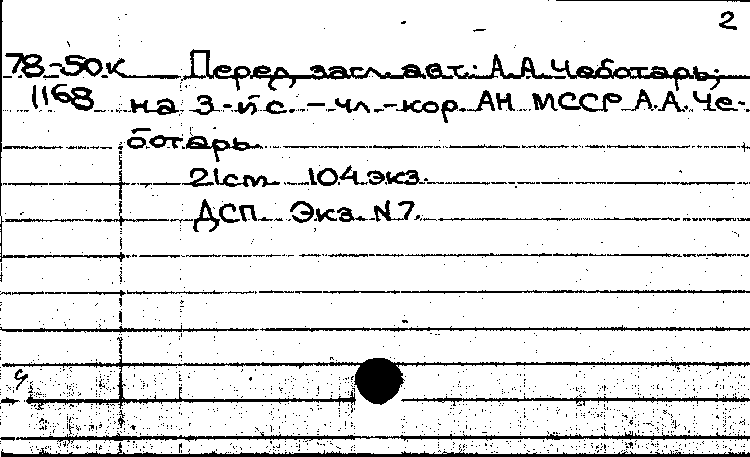 2
78-50к Перед загл. авт.: А.А. Чеботарь;
1168 на 3-й с. - чл.-кор. АН МССР А.А. Че-
ботарь.
21cm 104 экз.
ДСП. Экз. N 7.